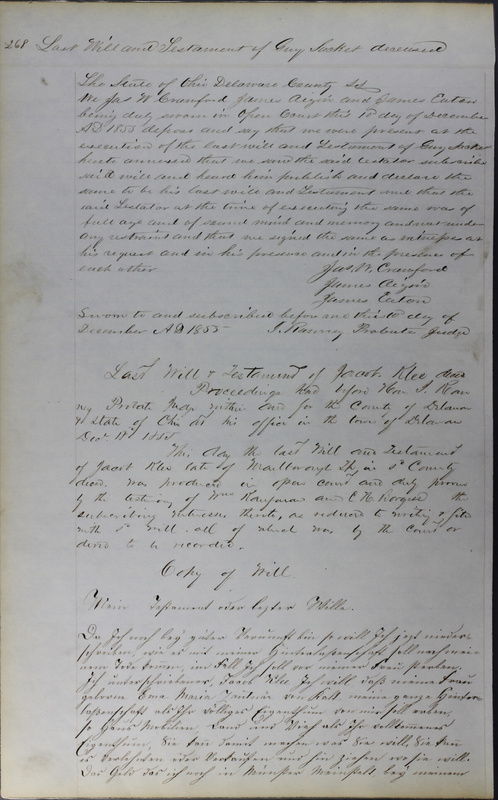 268 Last Will and Testament of Guy Sacket deceased
The State of Ohio Delaware County SS
We Jas W Crawford James and James Eaton
being duly sworn in Open Court this 1st day of December
AD 1855 depose and say that we were present at the
execution of the last will and Testament of Guy Sacket
hereto annexed that we saw the said testator subscribe
said will and heard him publish and declare the
same to be his last will and Testament and that the
said Testator at the time of executing the same was of
full age and of sound mind and memory and not under
any restraint and that we signed the same as witnesses at
his request and in his presence and in the presence of
each other
Jas. W. Crawford
James
James Eaton
Sworn to and subscribed before me this day of
December AD 1855 Probate Judge
Last Will & Testament of Jacob Klee decd
Proceedings had before Hon
Probate Judge within and for the County of Delaware
& State of Ohio at his office in the town of Delaware
Decr 1st 1855
This day the last Will and Testament
of Jacob Klee late of Marlborough Tp, in sd County
decd. was produced in open court and duly proven
by the testimony of Wm Kaufman and the
subscribing witnesses thereto, as reduced to writing & filed
with sd will. all of which was by the Court or
dered to be recorded.
Copy of Will
Mein Testament oder letzter Wille.
Da Ich noch bey guter Vernunft bin so will Ich jetzt nieder
schreiben, wie es mit meiner Hinterlassenschaft soll nach mei
nem Tode, im Fall Ich soll vor meiner Frau sterben.
Ich unterschriebener, Jacob Klee Ich will daß meine Frau
geborene Maria meine ganze Hinter
lassenschaft als Ihr völliges Eigenthum von mir soll
so Haus Mobilien Land und Vieh als Ihr vollkommenes
Eigenthum, Sie kann damit machen was Sie will. Sie kann
es oder verkaufen und hin ziehen wo sie will.
Das Geld das ich noch in bey meinem